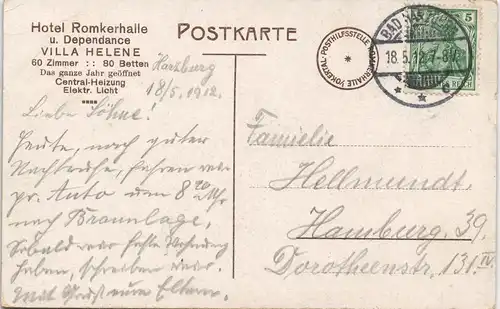 Hotel Romkerhalle
u. Dependance
VILLA HELENE
60 Zimmer :: 80 Betten
Das ganze Jahr geöffnet
Central-Heizung
Elektr. Licht
POSTKARTE
POSTHILFSSTELLE ROMKERHALLE (OKERTAL)
BAD HARZBURG
18.5.12.7-8V.
5
REICH
Harzburg
18/5. 1912.
Liebe Söhne!
Heute, nach guter
Nachtruhe, fahren wir
pr. Auto um 8 20 Uhr
nach Braunlage,
Sobald wir feste Wohnung
haben, schreiben wir.
Mit Gruß eure Eltern.
Familie
Hellmundt,
Hamburg. 39.
Dorotheenstr, 131 IV